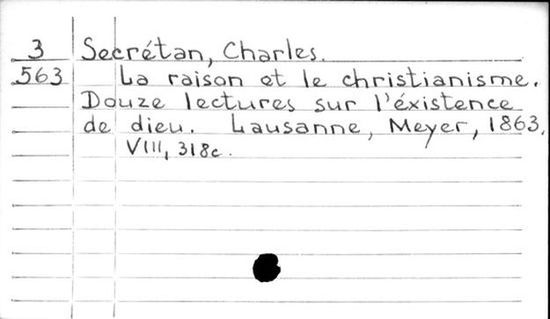 3 Secrétan, Charles.
563 La raison et le christianisme.
Douze lectures sur l'éxistence
de dieu. Lausanne, Meyer, 1863.
VIII, 318c.